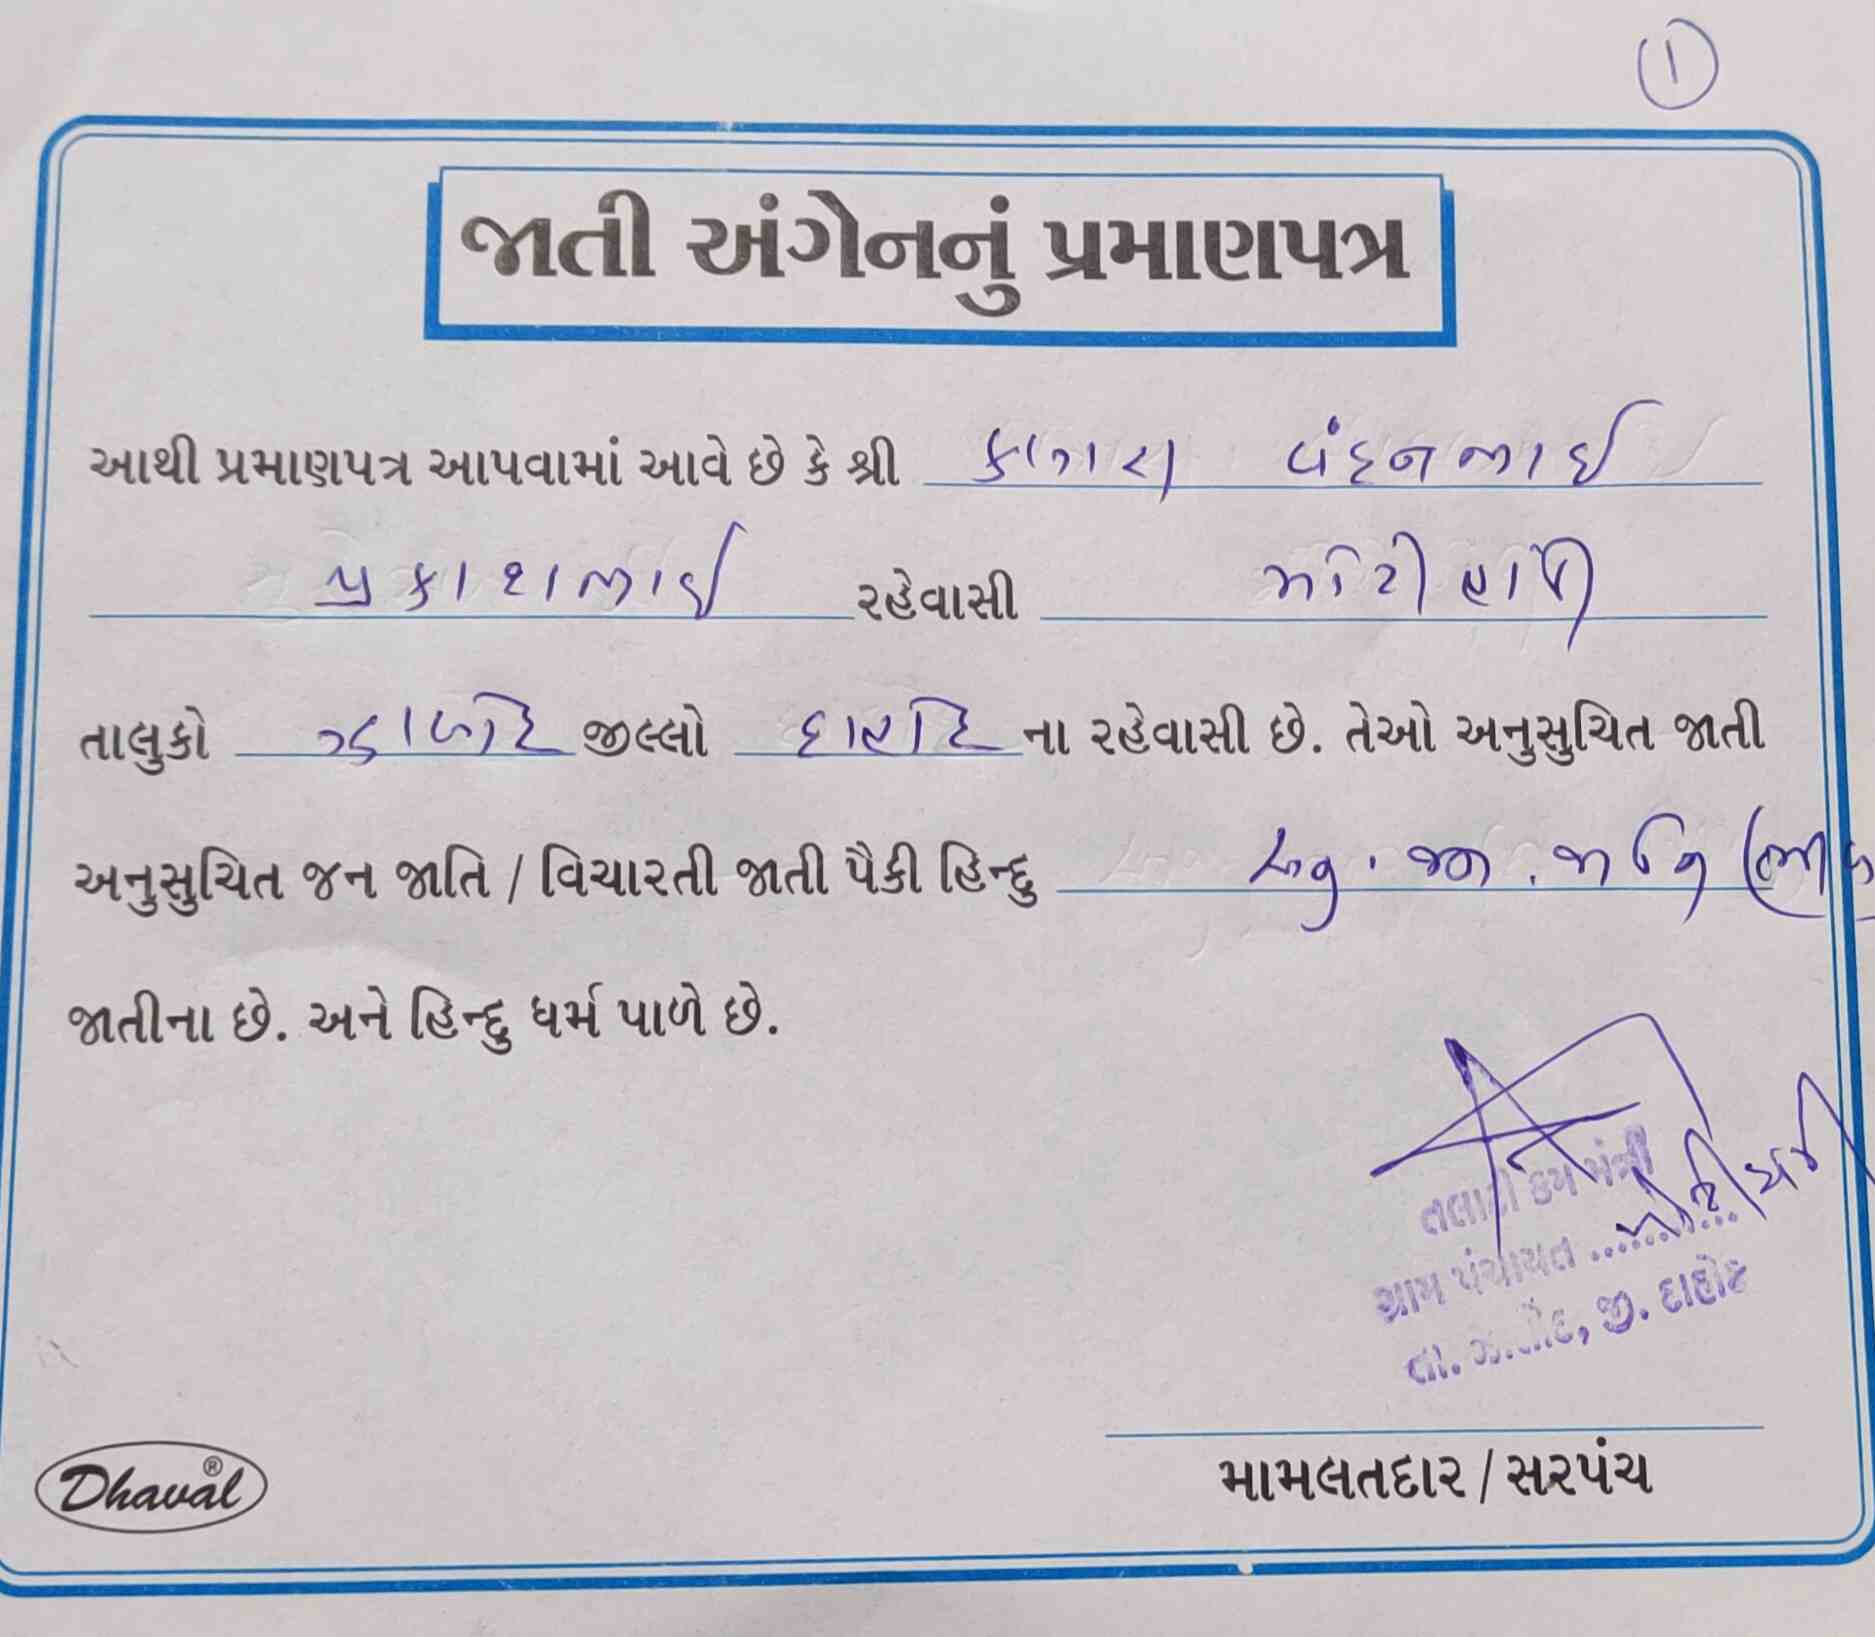 1
જાતી અંગેનનું પ્રમાણપત્ર
આથી પ્રમાણપત્ર આપવામાં આવે છે કે શ્રી ચંદનભાઈ
પ્રકાશભાઈ રહેવાસી
તાલુકો ઝાલોદ જીલ્લો દાહોદ ના રહેવાસી છે. તેઓ અનુસુચિત જાતી
અનુસુચિત જન જાતિ / વિચારતી જાતી પૈકી હિન્દુ અનુ. જન. જાતિ
જાતીના છે. અને હિન્દુ ધર્મ પાળે છે.
તલાટી કમ મંત્રી
ગ્રામ પંચાયત ..........
તા. ઝાલોદ, જી. દાહોદ
મામલતદાર / સરપંચ
Dhaval ®